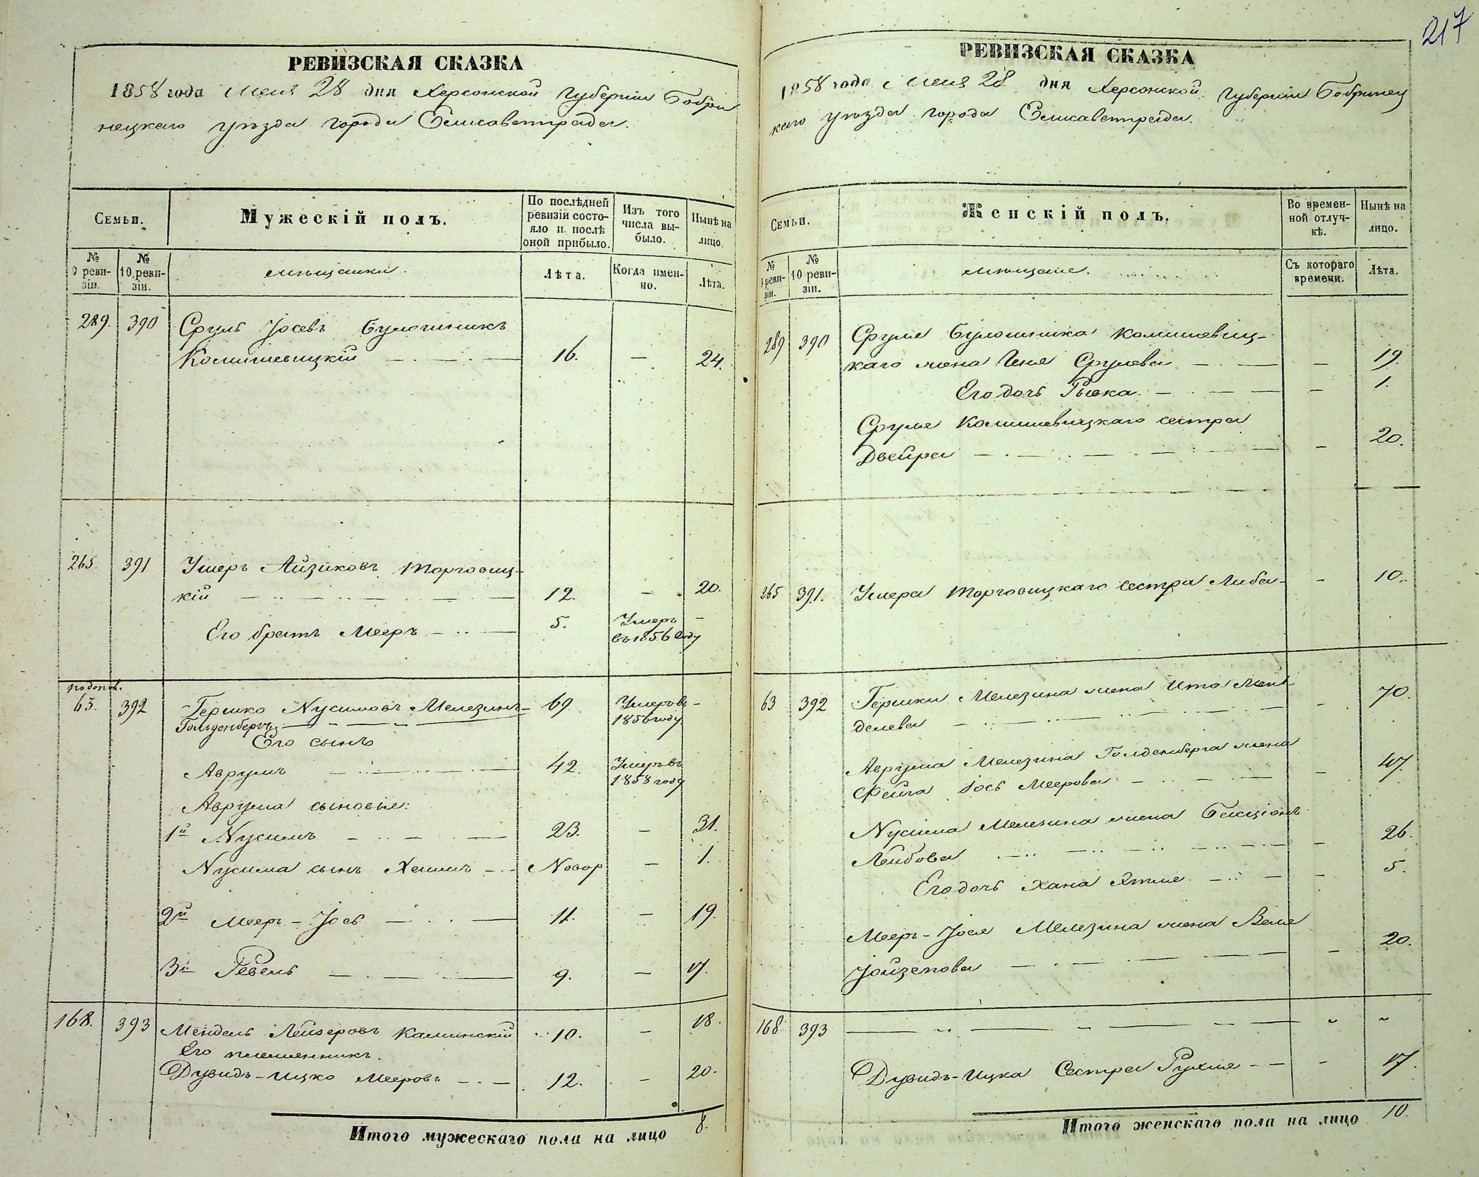 217
РЕВИЗСКАЯ СКАЗКА
1858 года Мая 28 дня Херсонской Губернiи Бобри
нецкаго уѣзда города Елисаветграда.
Семьи.
Мужескiй полъ.
По послѣдней ревизiи состояло и послѣ оной прибыло.
Изъ того числа выбыло.
Нынѣ на лицо.
№ 9 ревизiи.
№ 10 ревизiи.
мѣщане.
Лѣта.
Когда именно.
Лѣта.
289. 390 Сруль Iосевъ Булочникъ
Комишевицкiй 16. — 24.
265. 391 Умеръ Айзиковъ Торговиц-
кiй 12. — 20.
Его братъ Мееръ 5. Умеръ —
въ 1856 году
63. 392 Гершко Нусимовъ Мелезинъ 69 Умеръ въ —
Гольденбергъ 1856 году
Его сынъ
Аврумъ 42. Умеръ въ
1858 году
Аврума сыновья:
1й Нусимъ 23. — 31.
Нусима сынъ Хаимъ Новор — 1.
2й Мееръ-Iось 11. — 19.
3й 9. — 17.
168. 393 Мендель Лейзеровъ Каминскiй 10. — 18.
Его племянникъ.
Дувидъ-Ицко Мееровъ 12. — 20.
Итого мужескаго пола на лицо 8.
РЕВИЗСКАЯ СКАЗКА
1858 года Мая 28 дня Херсонской Губернiи Бобринец
каго уѣзда города Елисаветграда.
Семьи.
Женскiй полъ.
Во временной отлучкѣ.
Нынѣ на лицо.
№ 9 ревизiи.
№ 10 ревизiи.
мѣщане.
Съ котораго времени.
Лѣта.
289 390 Сруля Булочника Комишевиц-
каго жена Ченя Срулева — 19.
Его дочь Рывка — 1.
Сруля Комишевицкаго сестра
Двейра — 20.
265 391. Умера Торговицкаго сестра Либа — 10.
63 392 Гершки Мелезина жена Ита Мен-
делева — 70.
Аврума Мелезина Голденберга жена
Фейга Iось Меерова — 47.
Нусима Мелезина жена
Лейбова — 26.
Его дочь Хана — 5.
Мееръ-Iося Мелезина жена Веля
— 20.
168 393 — " "
Дувидъ-Ицка Сестра Рухля — 17.
Итого женскаго пола на лицо 10.